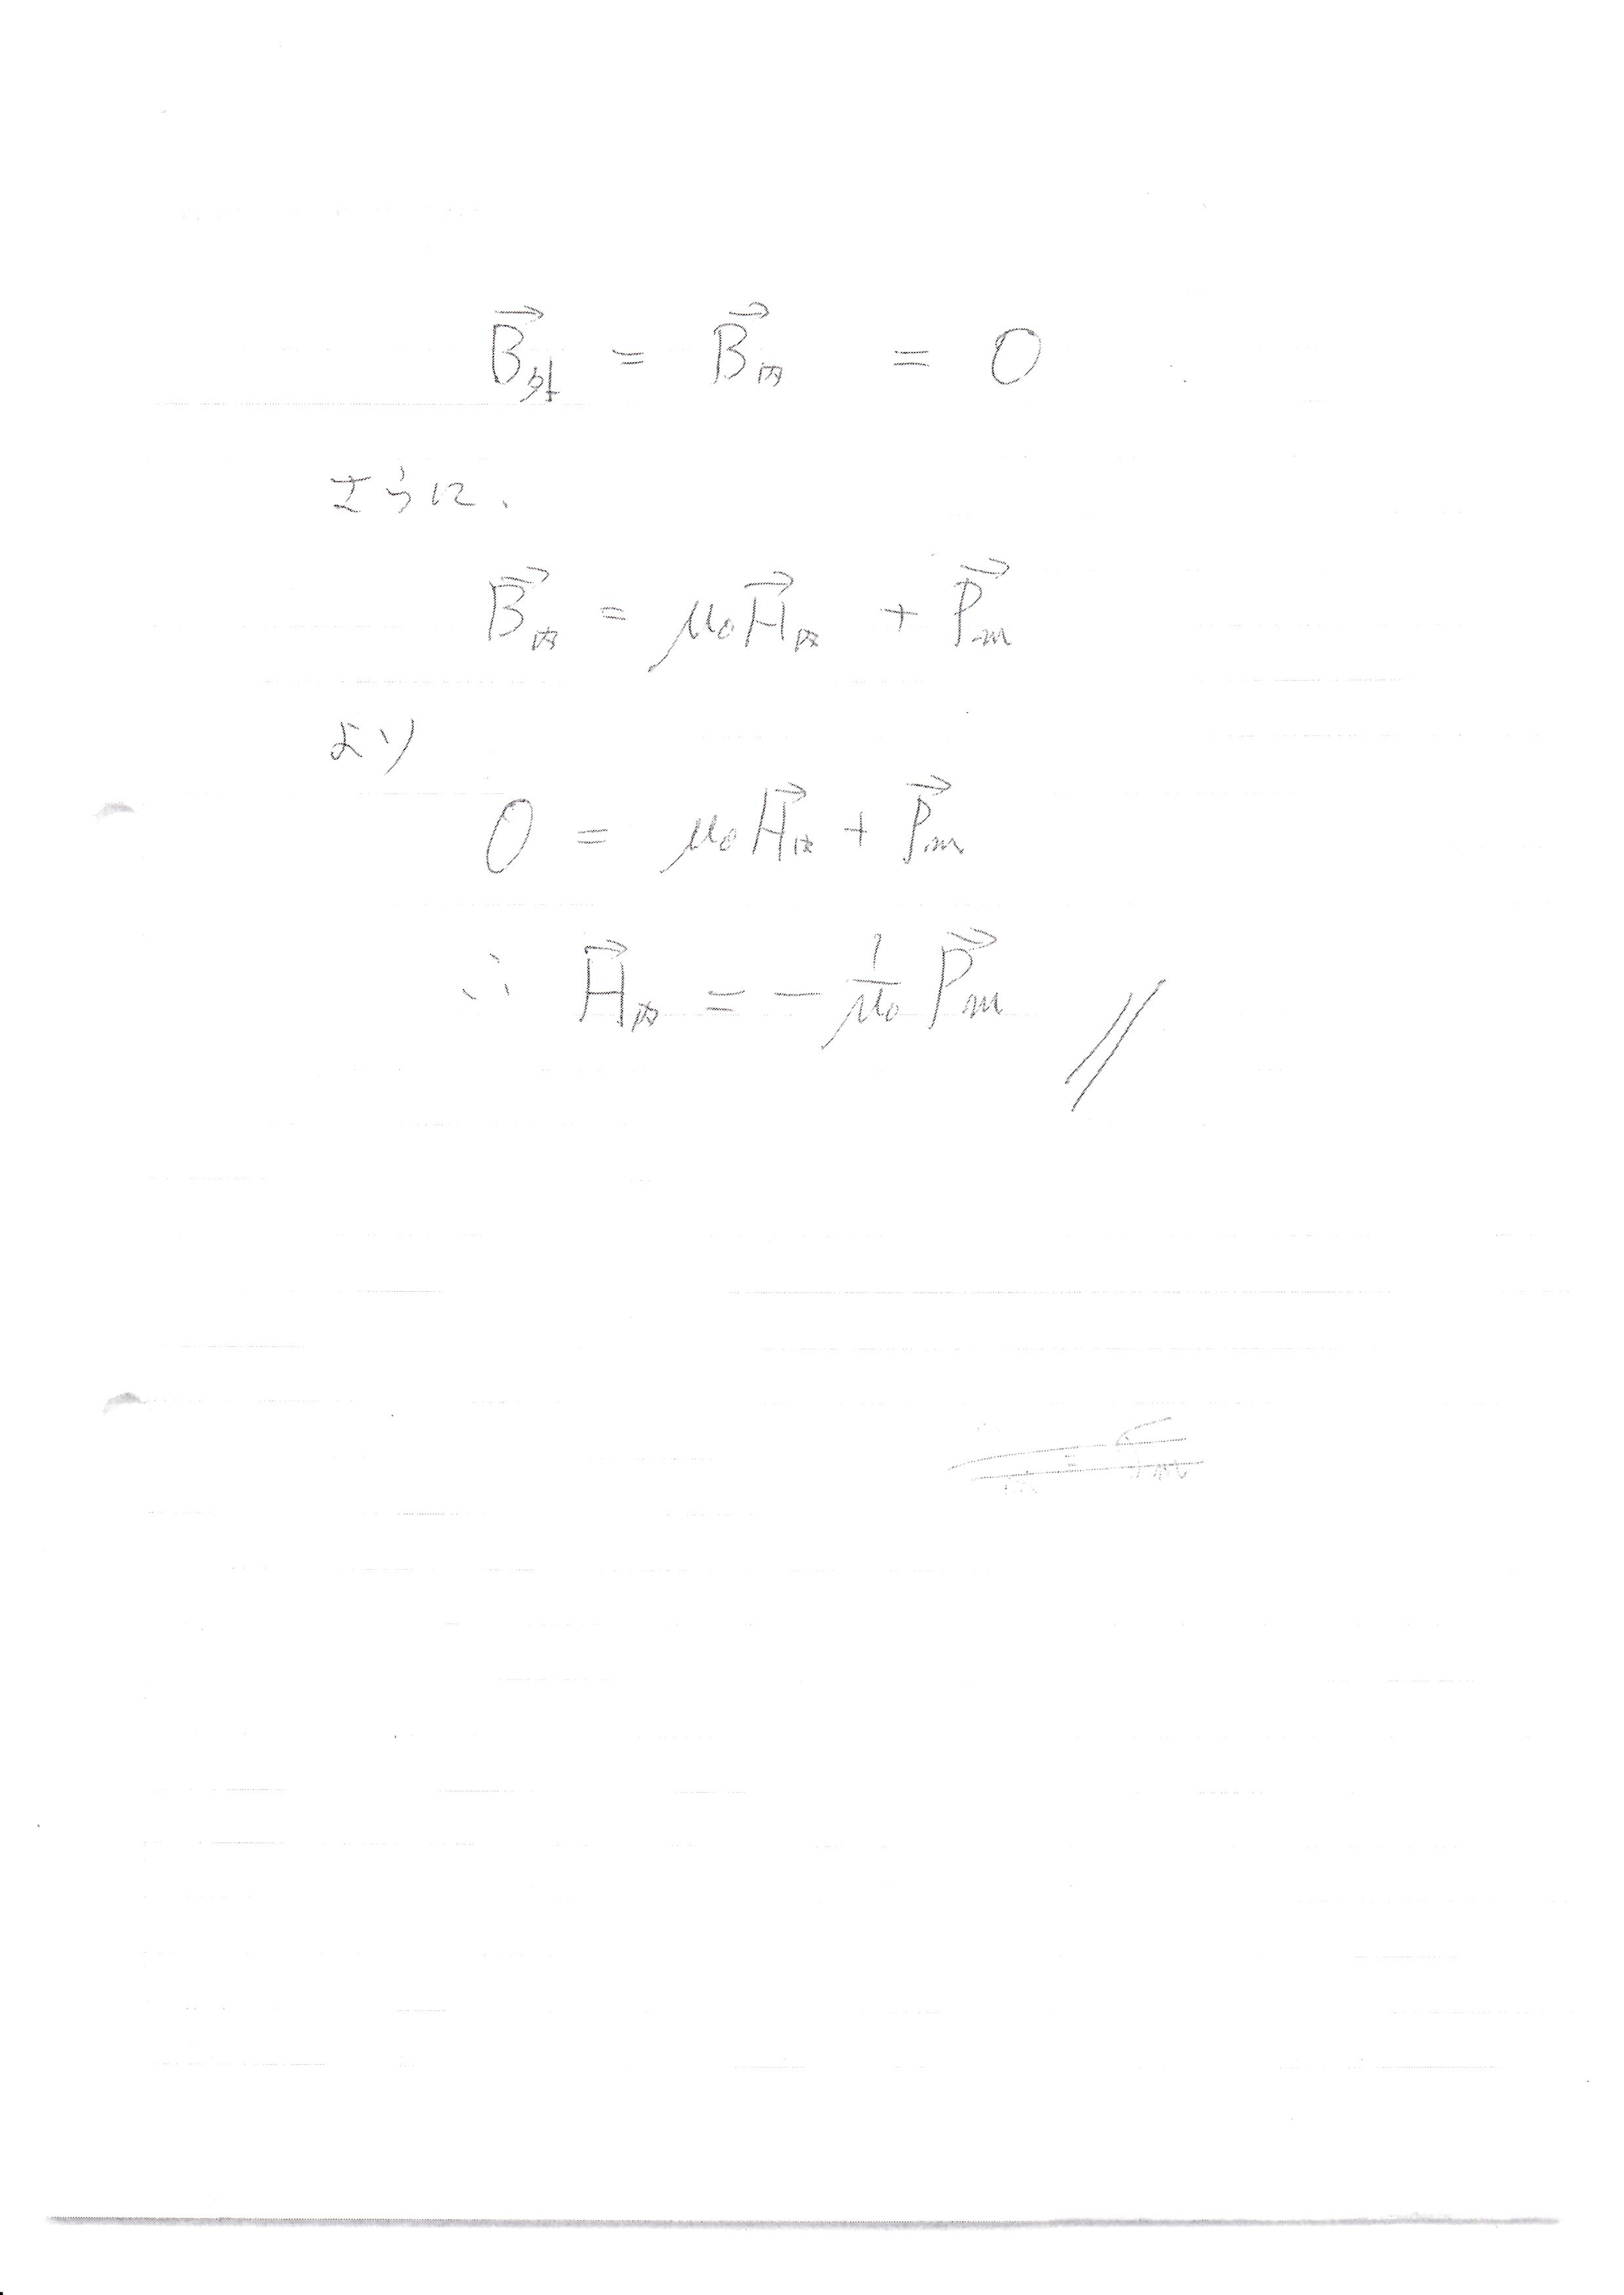 B⃗外 = B⃗内 = 0
さらに、
B⃗内 = μ₀H⃗内 + P⃗m
より
0 = μ₀H⃗内 + P⃗m
∴ H⃗内 = - 1/μ₀ P⃗m //